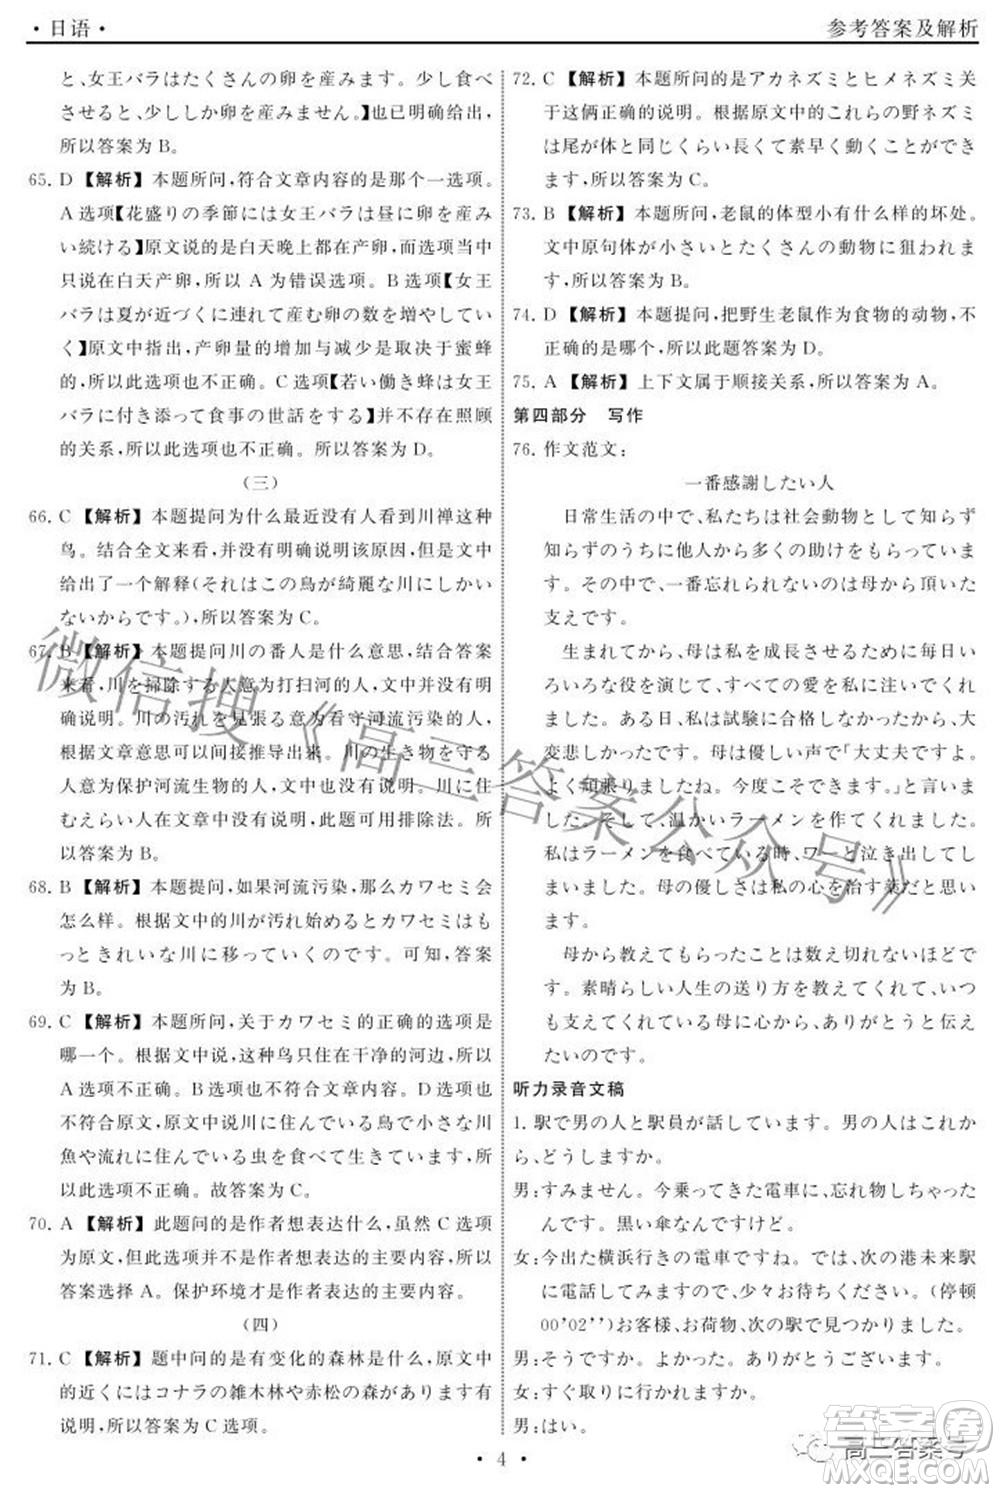 · 日语 ·
参考答案及解析
と、女王バラはたくさんの卵を産みます。少し食べ
させると、少ししか卵を産みません。】也已明确说明,
所以答案为 B。
65. D 【解析】本题所问,符合文章内容的是那一个选项。
A 选项【花盛りの季節には女王バラは昼に卵を産み
い続ける】原文说的是白天晚上都在产卵,而选项当中
只说在白天产卵,所以 A 为错误选项。B 选项【女王
バラは夏が近づくに連れて産む卵の数を増やしてい
く】原文中指出,产卵量的增加与减少是取决于蜜蜂
的喂食量,所以不正确。C 选项【若い働き蜂は女王
バラに付き添って食事の世話をする】并不存在照顾
的关系,所以此选项也不正确。所以答案为 D。
(三)
66. C 【解析】本题提问为什么最近没有人看到川禅这种
鸟。结合全文来看,并没有明确说明该原因,但是文中
给出了一个解释(それはこの鳥が綺麗な川にしかい
ないからです。),所以答案为 C。
67. B 【解析】本题提问川の番人是什么意思,结合答案
来看,川を掃除する人意为打扫河的人,文中并未明
确说明。川の汚れを見張る意为看守河流污染的人,
根据文章意思可以间接推导出来。川の生き物を守る
人意为保护河流生物的人,文中并没有说明。川に住
むえらい人在文章中没有说明,此题可用排除法。所
以答案为 B。
68. B 【解析】本题提问,如果河流污染,那么カワセミ会
怎么样。根据文中的川が汚れ始めるとカワセミはも
っときれいな川に移っていくのです。可知,答案
为 B。
69. C 【解析】本题所问,关于カワセミ的正确的选项是
哪一个。根据文中说,这种鸟只在干净的河边,所以
A 选项不正确。B 选项也不符合文章内容。D 选项
去掉,原文中说川に住んでいる鳥でも小さな川
魚や流れに住んでいる虫を食べて生きています。因
此此选项不正确。故答案为 C。
70. A 【解析】此题问的是作者想表达什么,虽然 C 选项
为原文,但并不是作者想表达的主要内容,所以
答案选择 A。保护环境才是作者想表达的主要内容。
(四)
71. C 【解析】题中问的是有变化的森林是什么,原文中
的近くにはコナラの雑木林や赤松の森があります有
说明,所以答案为 C 选项。
72. C 【解析】本题所问的是アカネズミとヒメネズミ关
于这俩正确的说明。根据原文中的これらの野ネズミ
は尾が体と同じくらい長くて素早く動くことができ
ます。所以答案为 C。
73. B 【解析】本题所问,老鼠的体型小有什么样的坏处。
文中原句体が小さいとたくさんの動物に狙われます。
所以答案为 B。
74. D 【解析】本题提问,把野生老鼠作为食物的动物,不
正确的是哪个,所以此题答案为 D。
75. A 【解析】上下文属于顺接关系,所以答案为 A。
第四部分 写作
76. 作文范文:
一番感謝したい人
日常生活の中で、私たちは社会動物として知らず
知らずのうちに他人から多くの助けをもらっていま
す。その中で、一番忘れられないのは母から頂いた
支えです。
生まれてから、母は私を成長させるために毎日い
ろいろな役を演じて、すべての愛を私に注いでくれ
ました。ある日、私は試験に合格しなかったので、大
変悲しかったです。母は優しい声で「大丈夫ですよ。
よく頑張りましたね。今度できますよ。」と言いまし
た。そして、温かいラーメンを作ってくれました。
私はラーメンを食べている時、ワーと泣き出してし
まいました。母の優しさは私の心を治す薬だと思い
ます。
母から教えてもらったことは数え切れないほどで
す。素晴らしい人生の送り方を教えてくれて、いつ
も支えてくれている母に心から、ありがとうと伝え
たいのです。
听力录音文稿
1. 駅で男の人と駅員が話しています。男の人はこれか
ら、どうしますか。
男:すみません。今乗ってきた電車に、忘れ物しちゃった
んです。黒い傘なんですけど。
女:今出た横浜行きの電車ですね。では、次の港未来駅
に電話してみますので、少々お待ちください。(停顿
00'02'')お客様、お荷物、次の駅で見つかりました。
男:そうですか。よかった。ありがとうございます。
女:すぐ取りに行かれますか。
男:はい。
· 4 ·
微信搜《高三答案公众号》
高三答案号
答案圈
MXQE.COM